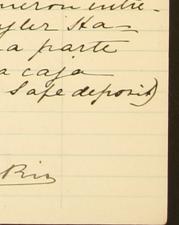 meron entre-
yler Ha-
a parte
a caja
Safe deposit)
Rios